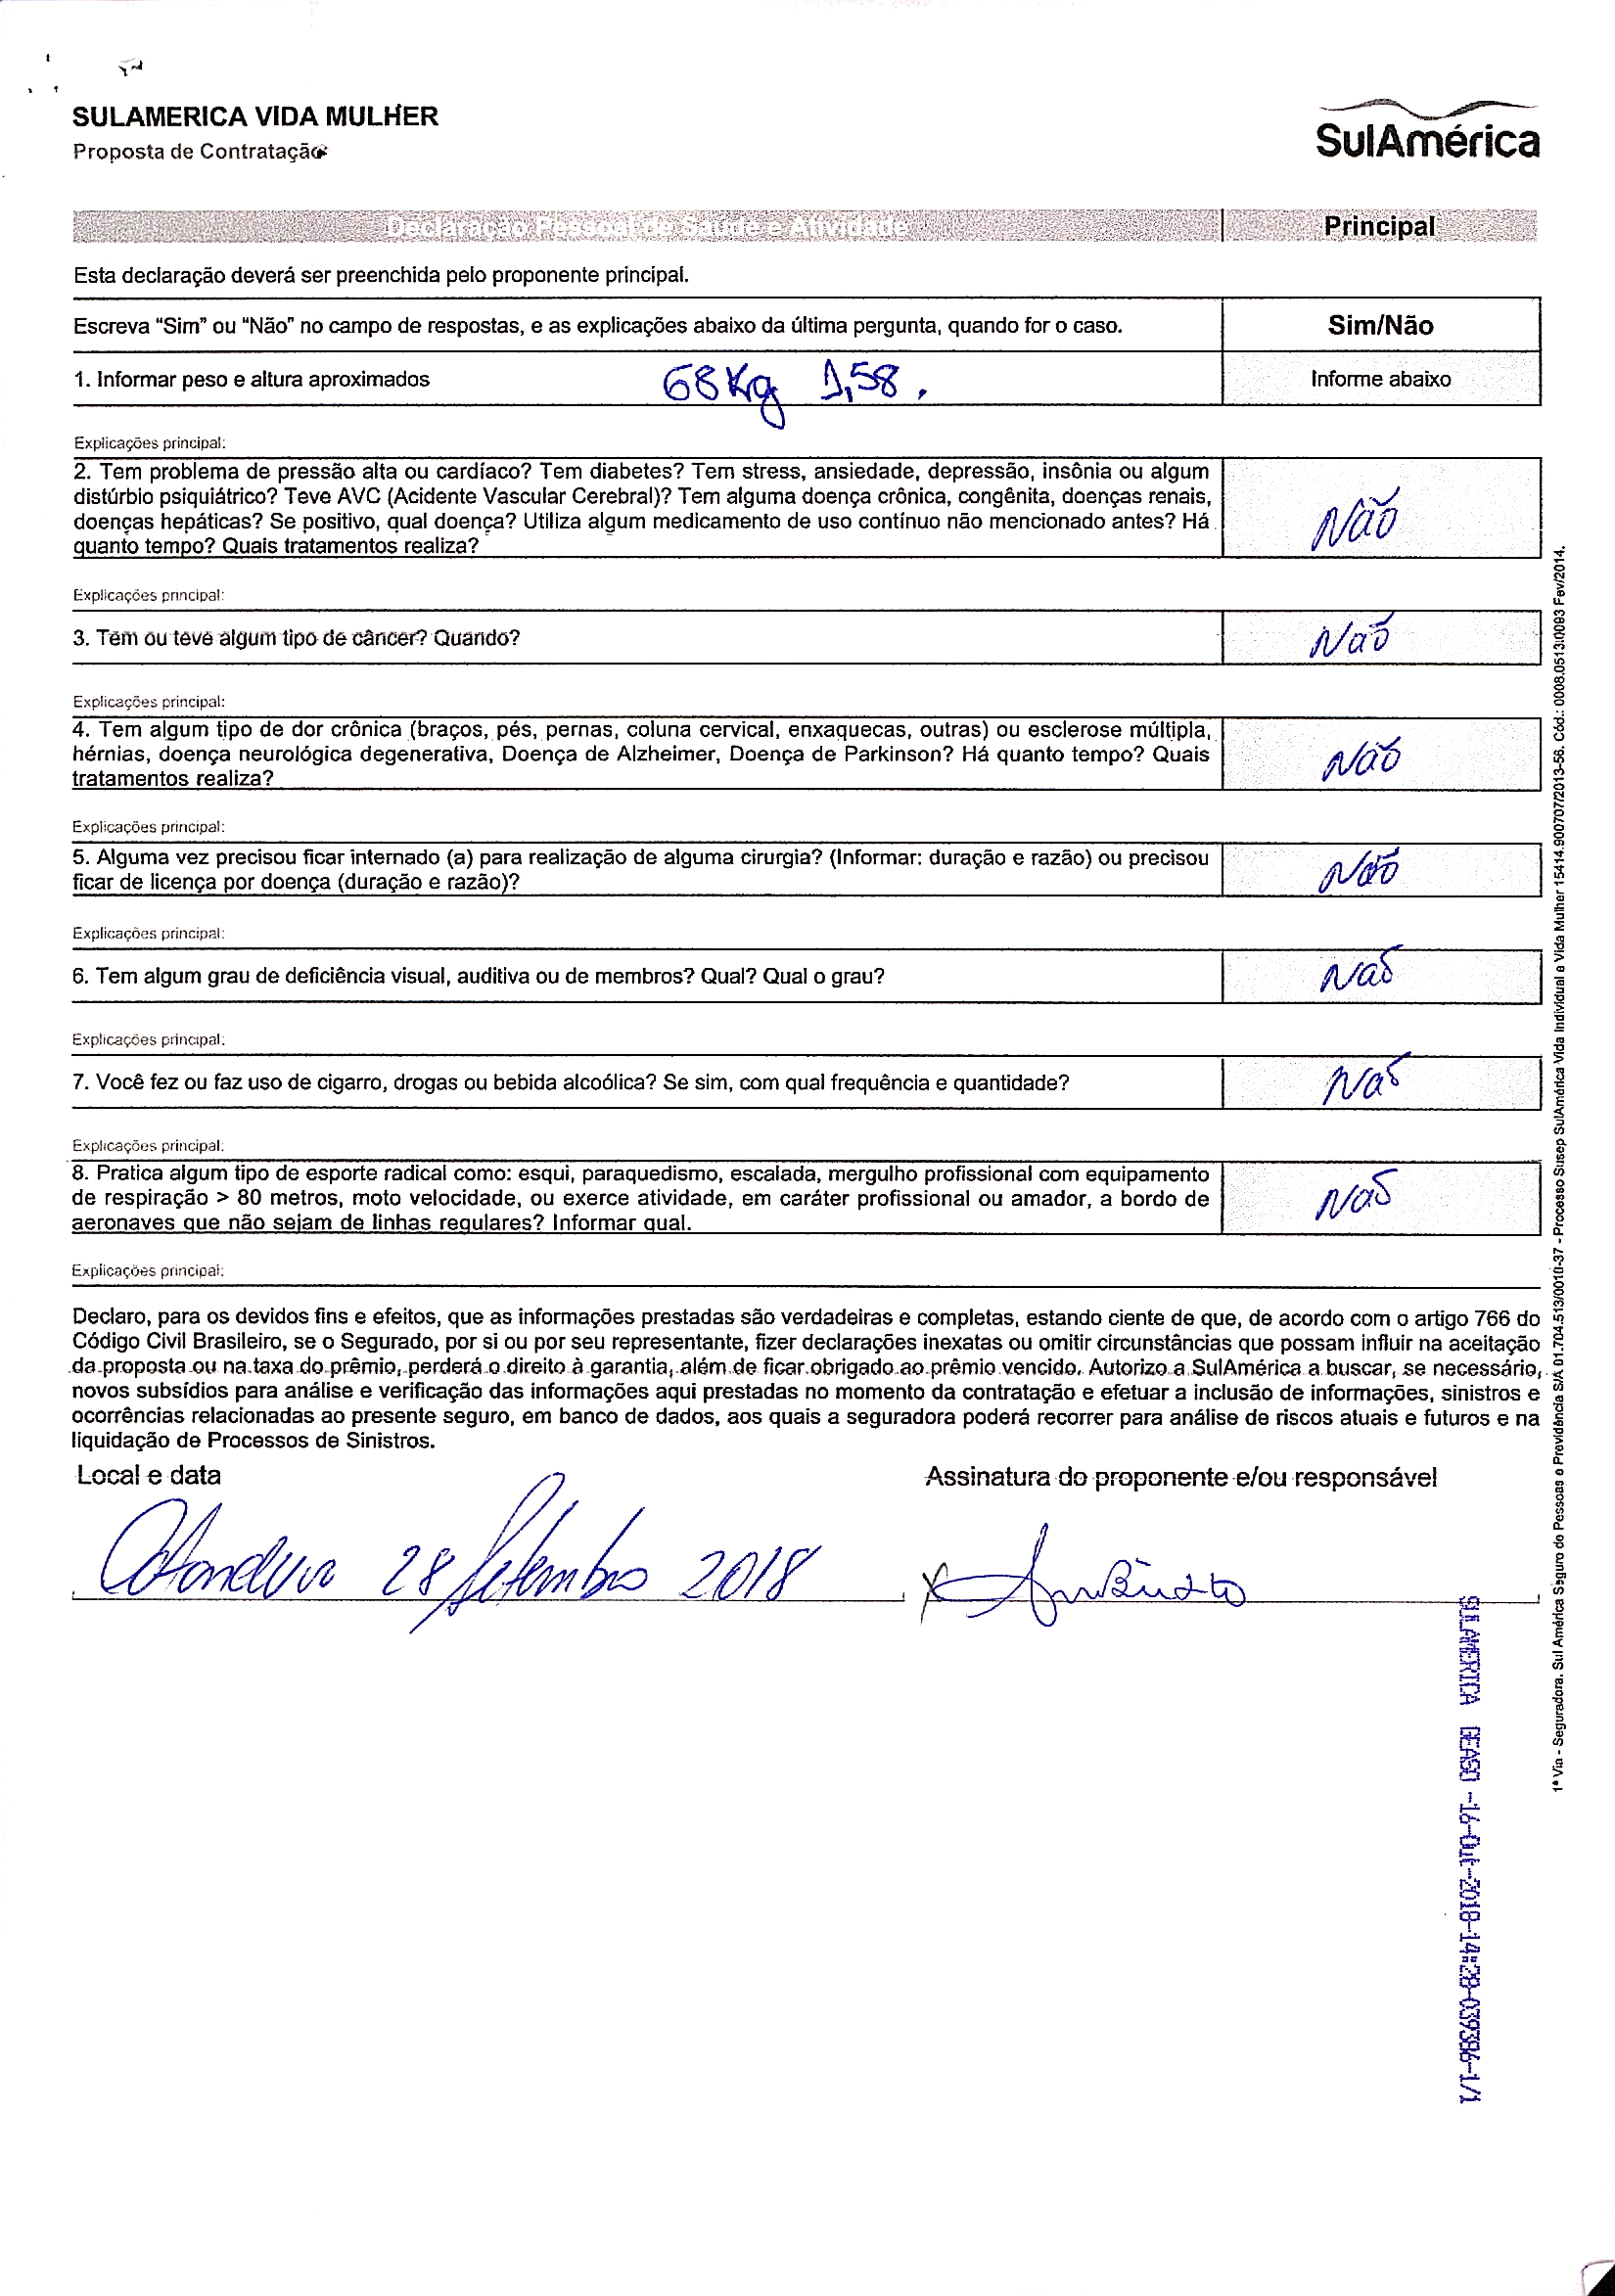 SULAMERICA VIDA MULHER
Proposta de Contratação
SulAmérica
Declaração Pessoal de Saúde e Atividade
Principal
Esta declaração deverá ser preenchida pelo proponente principal.
Escreva “Sim” ou “Não” no campo de respostas, e as explicações abaixo da última pergunta, quando for o caso.
Sim/Não
1. Informar peso e altura aproximados
68Kg 1,58.
Informe abaixo
Explicações principal:
2. Tem problema de pressão alta ou cardíaco? Tem diabetes? Tem stress, ansiedade, depressão, insônia ou algum
distúrbio psiquiátrico? Teve AVC (Acidente Vascular Cerebral)? Tem alguma doença crônica, congênita, doenças renais,
doenças hepáticas? Se positivo, qual doença? Utiliza algum medicamento de uso contínuo não mencionado antes? Há
quanto tempo? Quais tratamentos realiza?
Não
Explicações principal:
3. Tem ou teve algum tipo de câncer? Quando?
Não
Explicações principal:
4. Tem algum tipo de dor crônica (braços, pés, pernas, coluna cervical, enxaquecas, outras) ou esclerose múltipla,
hérnias, doença neurológica degenerativa, Doença de Alzheimer, Doença de Parkinson? Há quanto tempo? Quais
tratamentos realiza?
Não
Explicações principal:
5. Alguma vez precisou ficar internado (a) para realização de alguma cirurgia? (Informar: duração e razão) ou precisou
ficar de licença por doença (duração e razão)?
Não
Explicações principal:
6. Tem algum grau de deficiência visual, auditiva ou de membros? Qual? Qual o grau?
Não
Explicações principal:
7. Você fez ou faz uso de cigarro, drogas ou bebida alcoólica? Se sim, com qual frequência e quantidade?
Não
Explicações principal:
8. Pratica algum tipo de esporte radical como: esqui, paraquedismo, escalada, mergulho profissional com equipamento
de respiração > 80 metros, moto velocidade, ou exerce atividade, em caráter profissional ou amador, a bordo de
aeronaves que não sejam de linhas regulares? Informar qual.
Não
Explicações principal:
Declaro, para os devidos fins e efeitos, que as informações prestadas são verdadeiras e completas, estando ciente de que, de acordo com o artigo 766 do
Código Civil Brasileiro, se o Segurado, por si ou por seu representante, fizer declarações inexatas ou omitir circunstâncias que possam influir na aceitação
da proposta ou na taxa do prêmio, perderá o direito à garantia, além de ficar obrigado ao prêmio vencido. Autorizo a SulAmérica a buscar, se necessário,
novos subsídios para análise e verificação das informações aqui prestadas no momento da contratação e efetuar a inclusão de informações, sinistros e
ocorrências relacionadas ao presente seguro, em banco de dados, aos quais a seguradora poderá recorrer para análise de riscos atuais e futuros e na
liquidação de Processos de Sinistros.
Local e data
Assinatura do proponente e/ou responsável
28 Setembro 2018
X
1ª Via - Seguradora. Sul América Seguro de Pessoas e Previdência S/A 01.704.513/0010-37 - Processo Susep SulAmérica Vida Individual e Vida Mulher 15414.900707/2013-56. Cód.: 0008.0513.0093 Fev/2014.
SULAMERICA